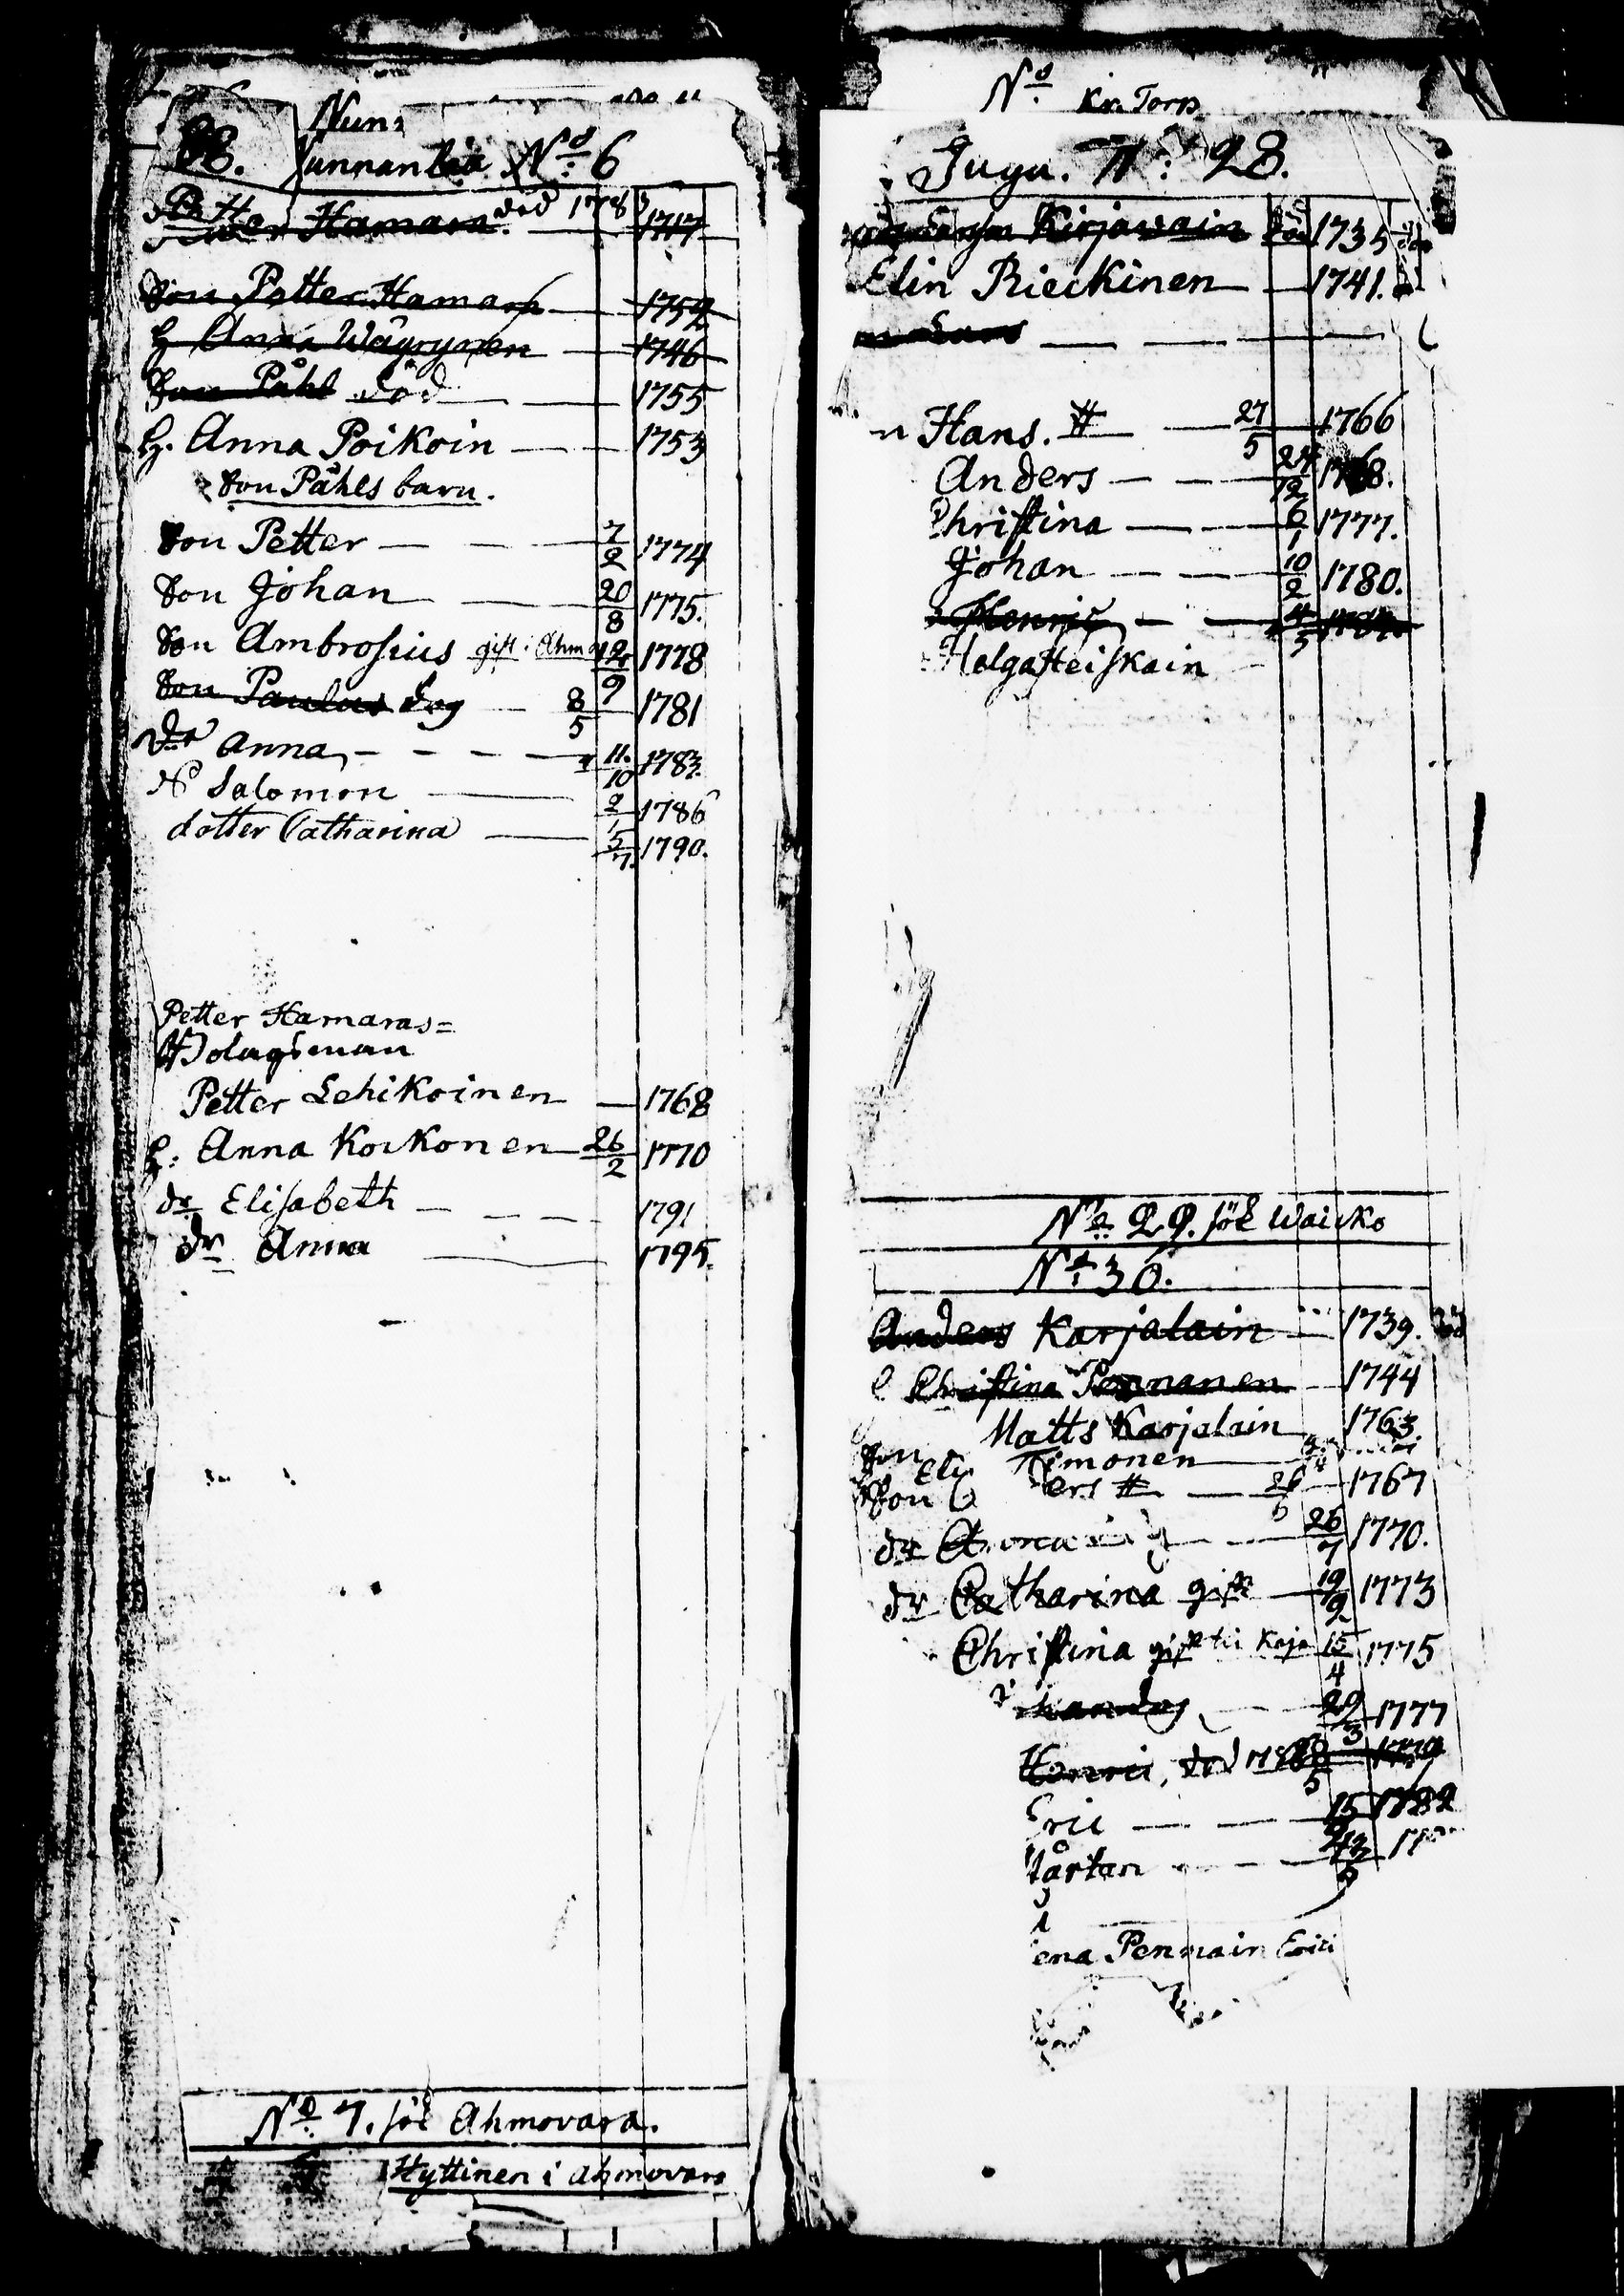 88.
Nun
Nunnanlax No 6
Petter Hamara död 1778 1717
Son Petter Hamara 1752
h Anna Wäyrynen 1746
Son Påhl död 1755
h. Anna Poikoin 1753
Son Påhls barn.
Son Petter 7/2 1774
Son Johan 20/8 1775.
Son Ambrosius gift i Ahmo 12/9 1778
Son Paulus 8/5 1781
dr Anna 11./10 1783.
Salomon 2/1 1786
dotter Catharina 5/7. 1790.
Petter Hamaras=
Bolagsman
Petter Lehikoinen 1768
h: Anna Korkonen 26/2 1770
dr Elisabeth 1791
dr Anna 1795.
No 7. sök Ahmovara.
Hyttinen i Ahmovara
No Kr. Torp
Juga. No 28.
Kirjavain 1735
Elin Rieckinen 1741.
Lars
n Hans. # 27/5 1766
Anders 24/12 1768.
Christina 6/1 1777.
Johan 10/2 1780.
Henric 4/5
Helga Heiskain
No 29. sök Waicko
No 30.
Anders Karjalain 1739. död
Christina Pennanen 1744
Son Matts Karjalain 1763.
Timonen
Son ers # 26/6 1767
dr Anna 26/7 1770.
dr Catharina gift 19/9 1773
Christina gift till Kaja 15/4 1775
29/3 1777
Henric, död 1779
Eric 15 1782
Mårten
ena Pennain Erici